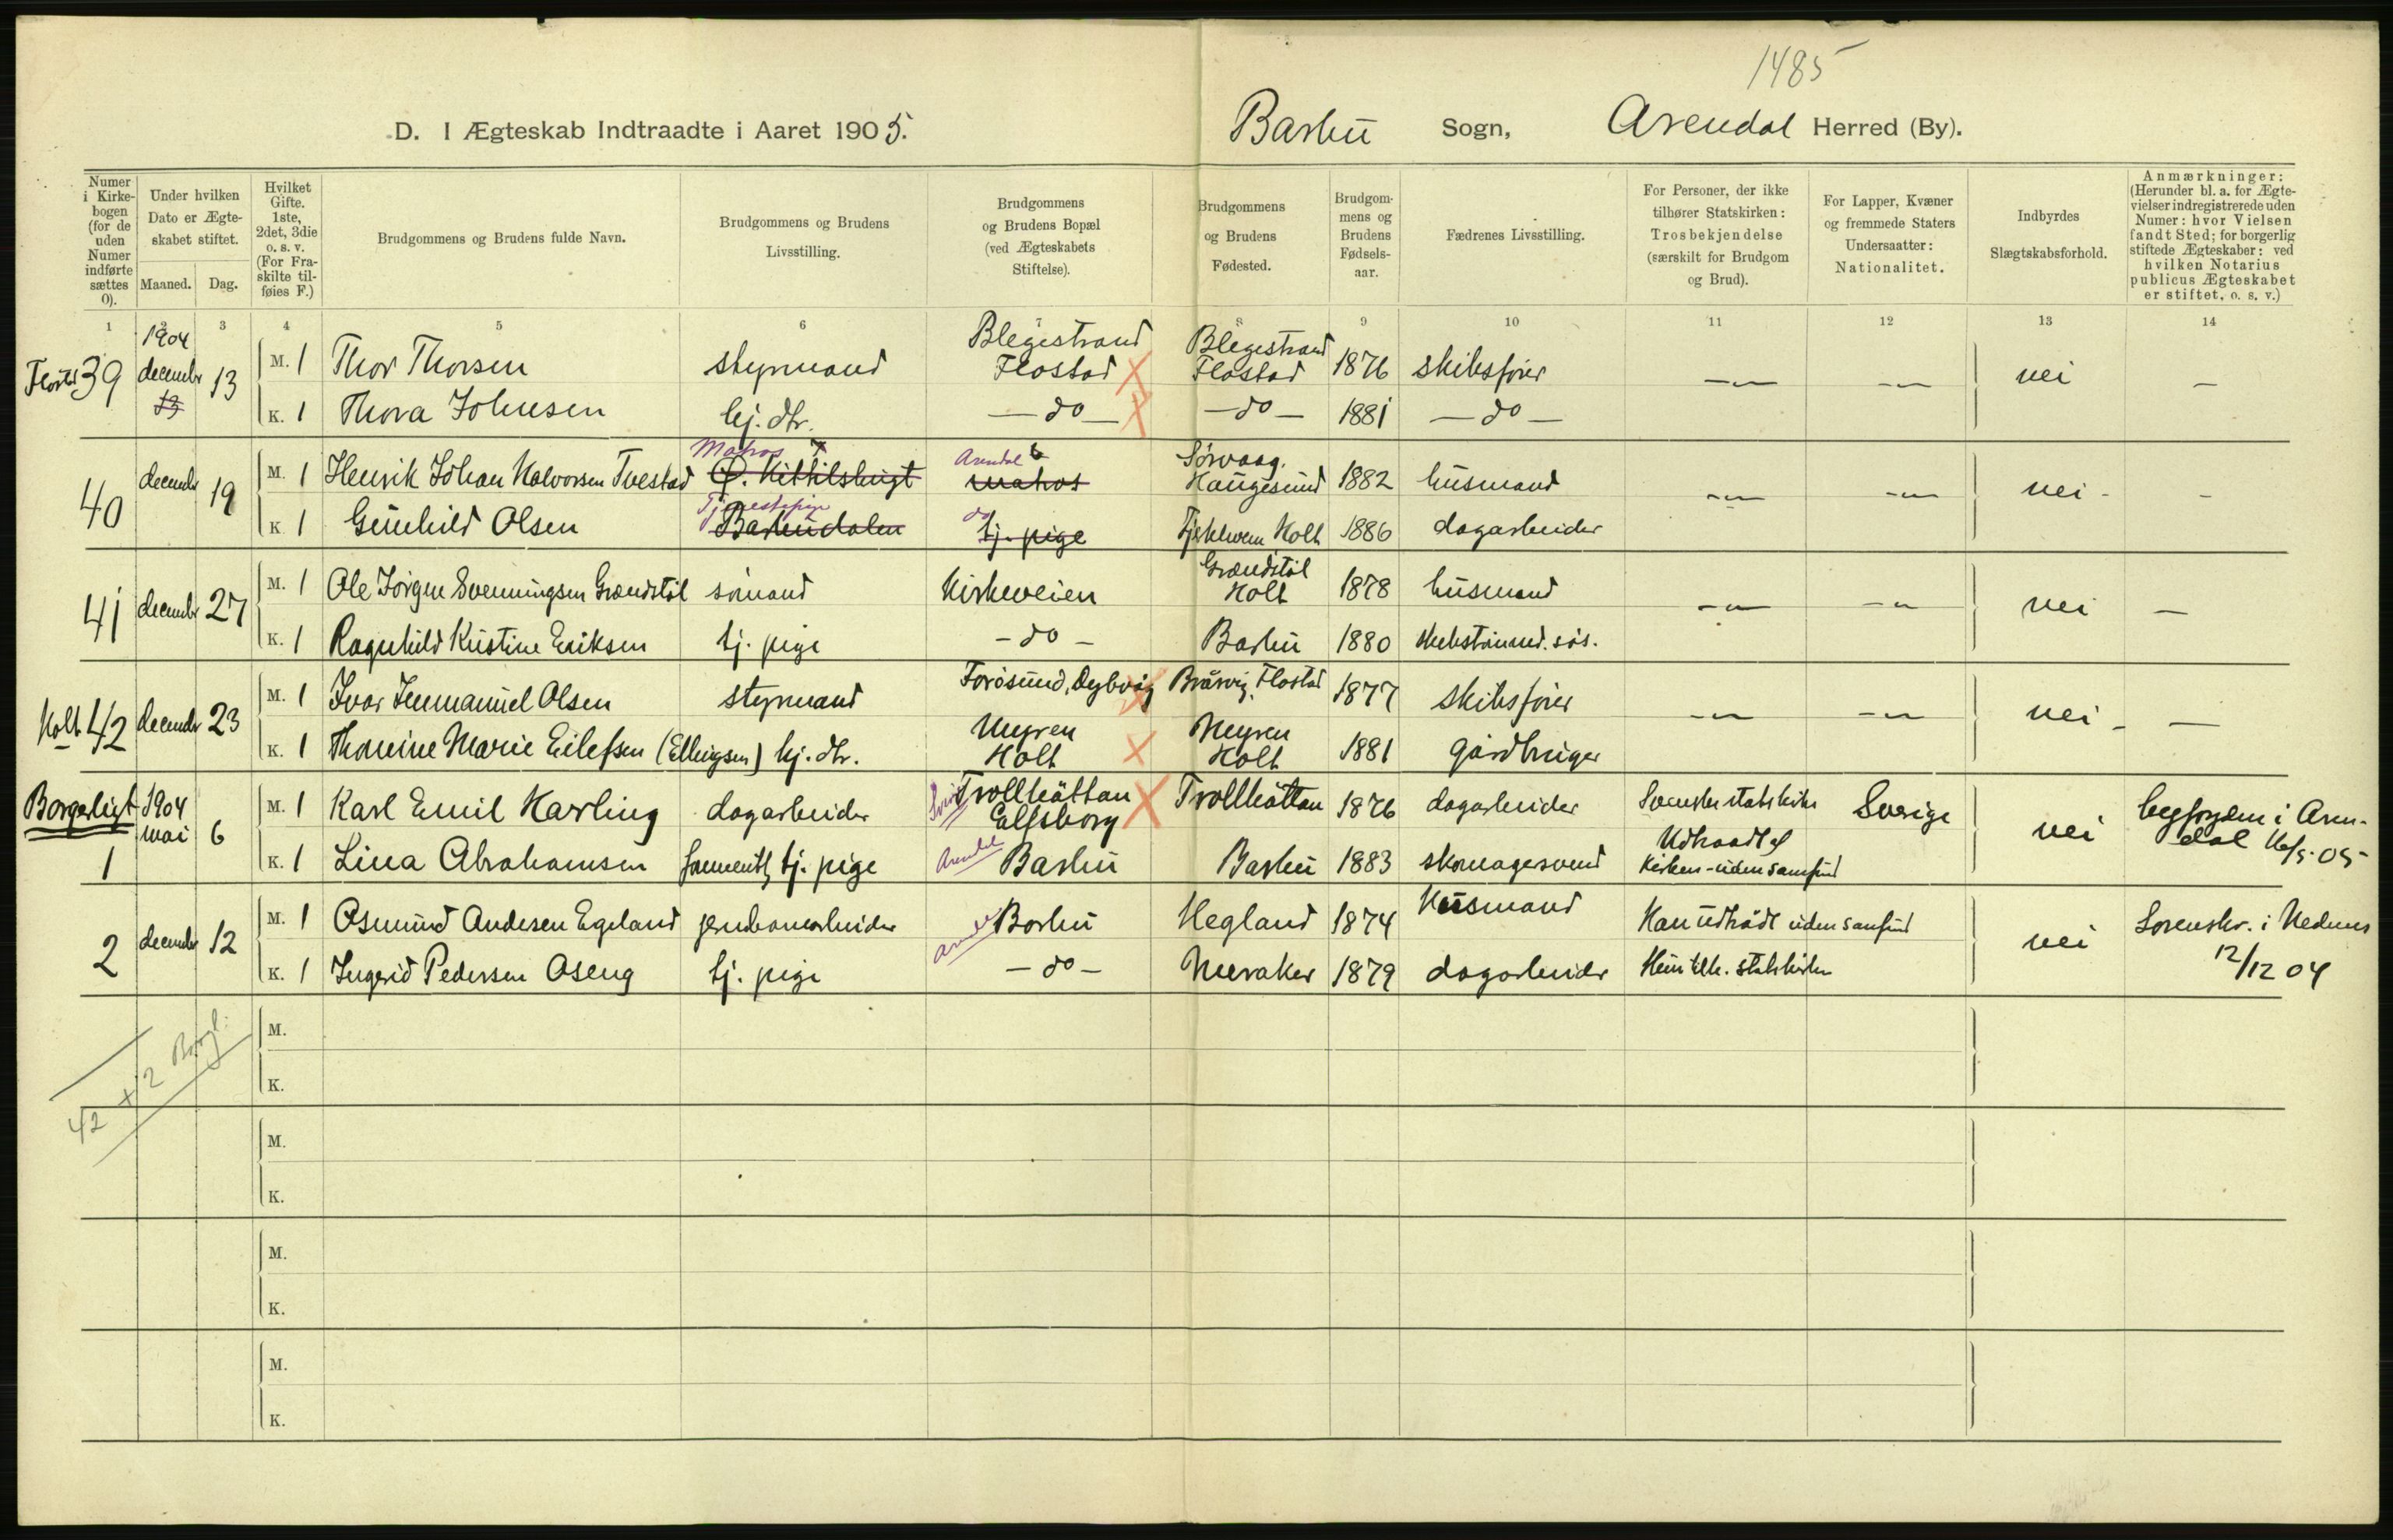 1485
D. I Ægteskab Indtraadte i Aaret 1905.
Barbu Sogn, Arendal Herred (By).
Numer i Kirkebogen (for de uden Numer indførte sættes 0).
Under hvilken Dato er Ægteskabet stiftet.
Maaned. Dag.
Hvilket Gifte. 1ste, 2det, 3die o. s. v. (For Fraskilte tilføies F.)
Brudgommens og Brudens fulde Navn.
Brudgommens og Brudens Livsstilling.
Brudgommens og Brudens Bopæl (ved Ægteskabets Stiftelse).
Brudgommens og Brudens Fødested.
Brudgommens og Brudens Fødselsaar.
Fædrenes Livsstilling.
For Personer, der ikke tilhører Statskirken: Trosbekjendelse (særskilt for Brudgom og Brud).
For Lapper, Kvæner og fremmede Staters Undersaatter: Nationalitet.
Indbyrdes Slægtskabsforhold.
Anmærkninger: (Herunder bl. a. for Ægtevielser indregistrerede uden Numer: hvor Vielsen fandt Sted; for borgerlig stiftede Ægteskaber: ved hvilken Notarius publicus Ægteskabet er stiftet, o. s. v.)
1 2 3 4 5 6 7 8 9 10 11 12 13 14
1904
39 decembr 13 M. 1 Thor Thorsen styrmand Blegestrand Flostad Blegestrand Flostad 1876 skibsfører — — nei —
K. 1 Thora Johnsen hj. dtr. — do — — do — 1881 — do —
40 decembr 19 M. 1 Henrik Johan Halvorsen Tvestad Matros Arendal matros Sørvaag. Haugesund 1882 husmand — — nei - -
K 1 Gunhild Olsen Tjenestepige Barbudalen do tj. pige Holt 1886 dagarbeider
41 decembr 27 M. 1 Ole Jørgen Svenningsen Grændstøl sømand Kirkeveien Grændstøl Holt 1878 husmand — — nei —
K. 1 Ragnhild Kristine Eriksen tj. pige - do - Barbu 1880
Holt 42 decembr 23 M. 1 Ivar Immanuel Olsen styrmand Forøsund, Dybvåg Bråsvig. Flostad 1877 skibsfører — — nei - —
K. 1 Thomine Marie Eilefsen (Ellingsen) hj. dtr. Myren Holt Myren Holt 1881 gårdbruger
Borgerligt 1904
1 mai 6 M. 1 Karl Emil Karling dagarbeider Trollhättan Elfsborg Trollhättan 1876 dagarbeider Svenske statskirke Sverige nei byfogden i Arendal 16/5-05
K. 1 Lina Abrahamsen tj. pige Arendal Barbu Barbu 1883 skomagersvend Udtraadt af kirken - uden samfund
2 decembr 12 M. 1 Osmund Andersen Egeland jernbanearbeider Arendal Barbu Hegland 1874 Husmand Han udtrådt uden samfund nei Sorenskr. i Nedenes 12/12 04
K. 1 Ingerid Pedersen Aseng tj. pige - do - Meraker 1879 dagarbeider Hun tilh. statskirken
42 + 2 Borgl.
M.
K.
M.
K.
M.
K.
M.
K.